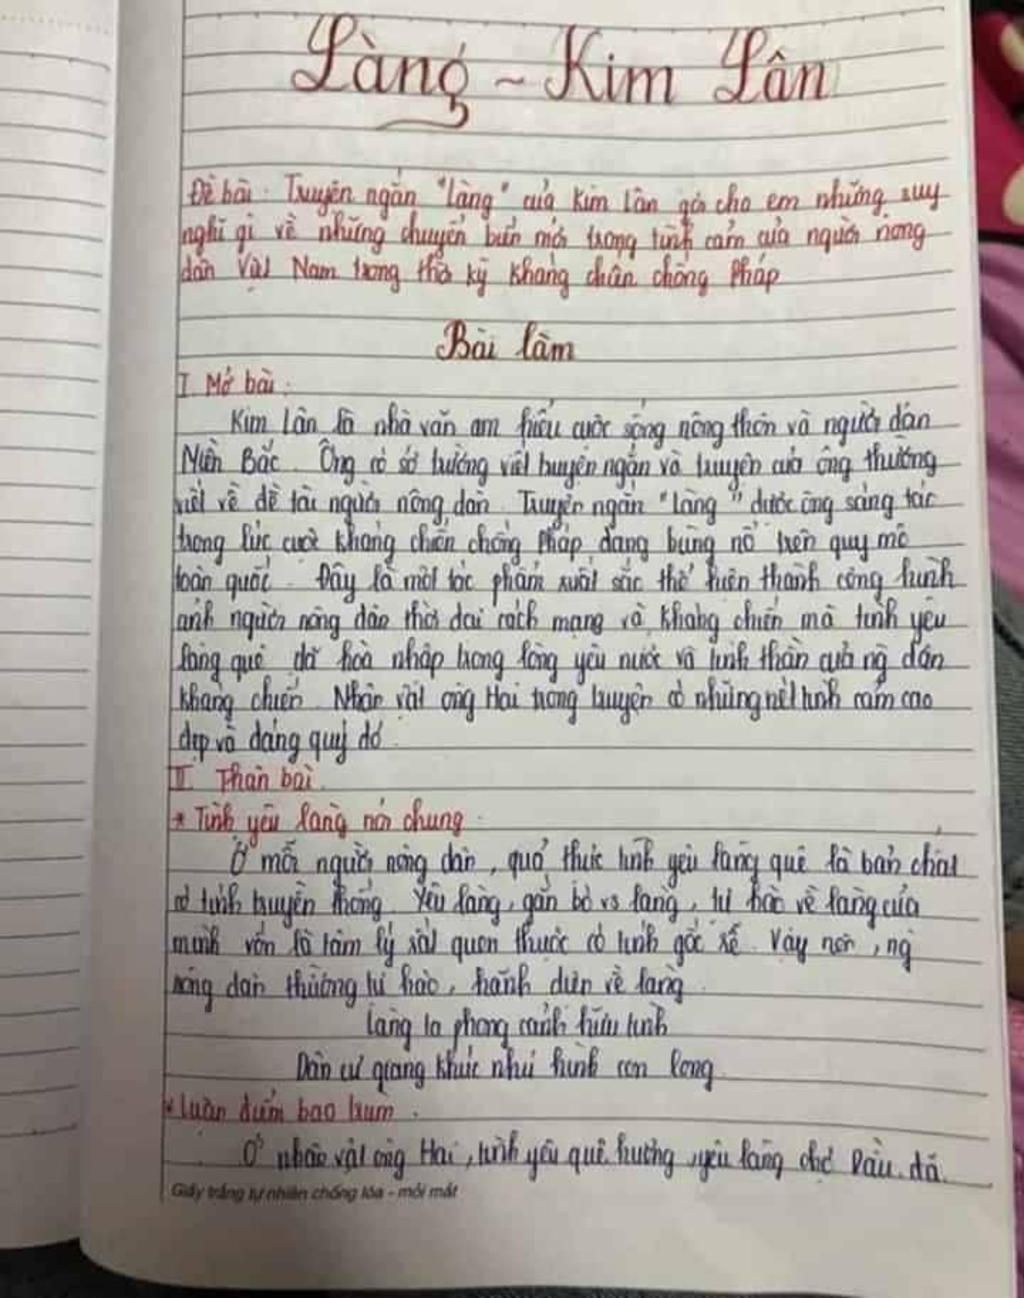 Làng ~ Kim Lân
Đề bài: Truyện ngắn "Làng" của Kim Lân gợi cho em những suy
nghĩ gì về những chuyển biến mới trong tình cảm của người nông
dân Việt Nam trong thời kỳ kháng chiến chống Pháp
Bài làm
I. Mở bài:
Kim Lân là nhà văn am hiểu cuộc sống nông thôn và người dân
Miền Bắc. Ông có sở trường viết truyện ngắn và truyện của ông thường
viết về đề tài người nông dân. Truyện ngắn "Làng" được ông sáng tác
trong lúc cuộc kháng chiến chống Pháp đang bùng nổ trên quy mô
toàn quốc. Đây là một tác phẩm xuất sắc thể hiện thành công hình
ảnh người nông dân thời đại cách mạng và kháng chiến mà tình yêu
làng quê đã hoà nhập trong lòng yêu nước và tinh thần của ng dân
kháng chiến. Nhân vật ông Hai trong truyện có những nét tình cảm cao
đẹp và đáng quý đó.
II. Thân bài.
* Tình yêu làng nói chung.
Ở mỗi người nông dân, quả thực tình yêu làng quê là bản chất
có tính truyền thống. Yêu làng, gắn bó vs làng, tự hào về làng của
mình vốn là tâm lý rất quen thuộc có tính gốc rễ. Vậy nên, ng
nông dân thường tự hào, hãnh diện về làng.
Làng ta phong cảnh hữu tình
Dân cư giang khúc như hình con long
* Luận điểm bao trùm.
Ở nhân vật ông Hai, tình yêu quê hương, yêu làng chợ Dầu đã
Giấy trắng tự nhiên chống lóa - mỏi mắt